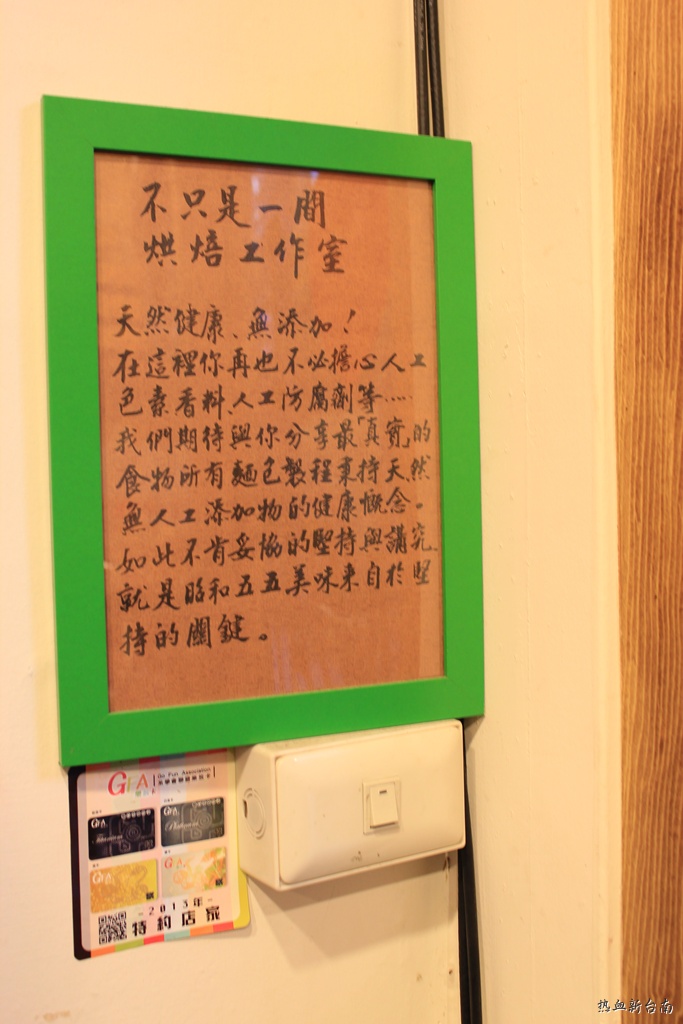 不只是一間
烘焙工作室
天然健康、無添加！
在這裡你再也不必擔心人工
色素香料、人工防腐劑等……
我們期待與你分享最「真實」的
食物所有麵包製程秉持天然
無人工添加物的健康慨念。
如此不肯妥協的堅持與講究
就是昭和五五美味來自於堅
持的關鍵。
GFA
Go Fun Association
GFA
GFA
Platinum
GFA
GFA
-2013年-
特約店家
热血新台南